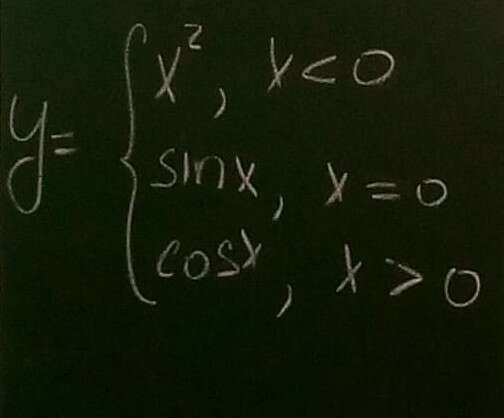 y = { x², x < 0
sinx, x = 0
cosx, x > 0